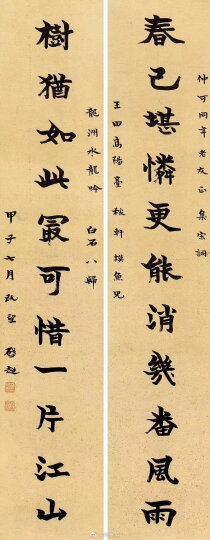 仲可同年老友正 集宋詞
春已堪憐更能消幾番風雨
玉田高陽臺 稼軒摸魚兒
龍洲水龍吟 白石八歸
樹猶如此最可惜一片江山
甲子七月既望 啟超